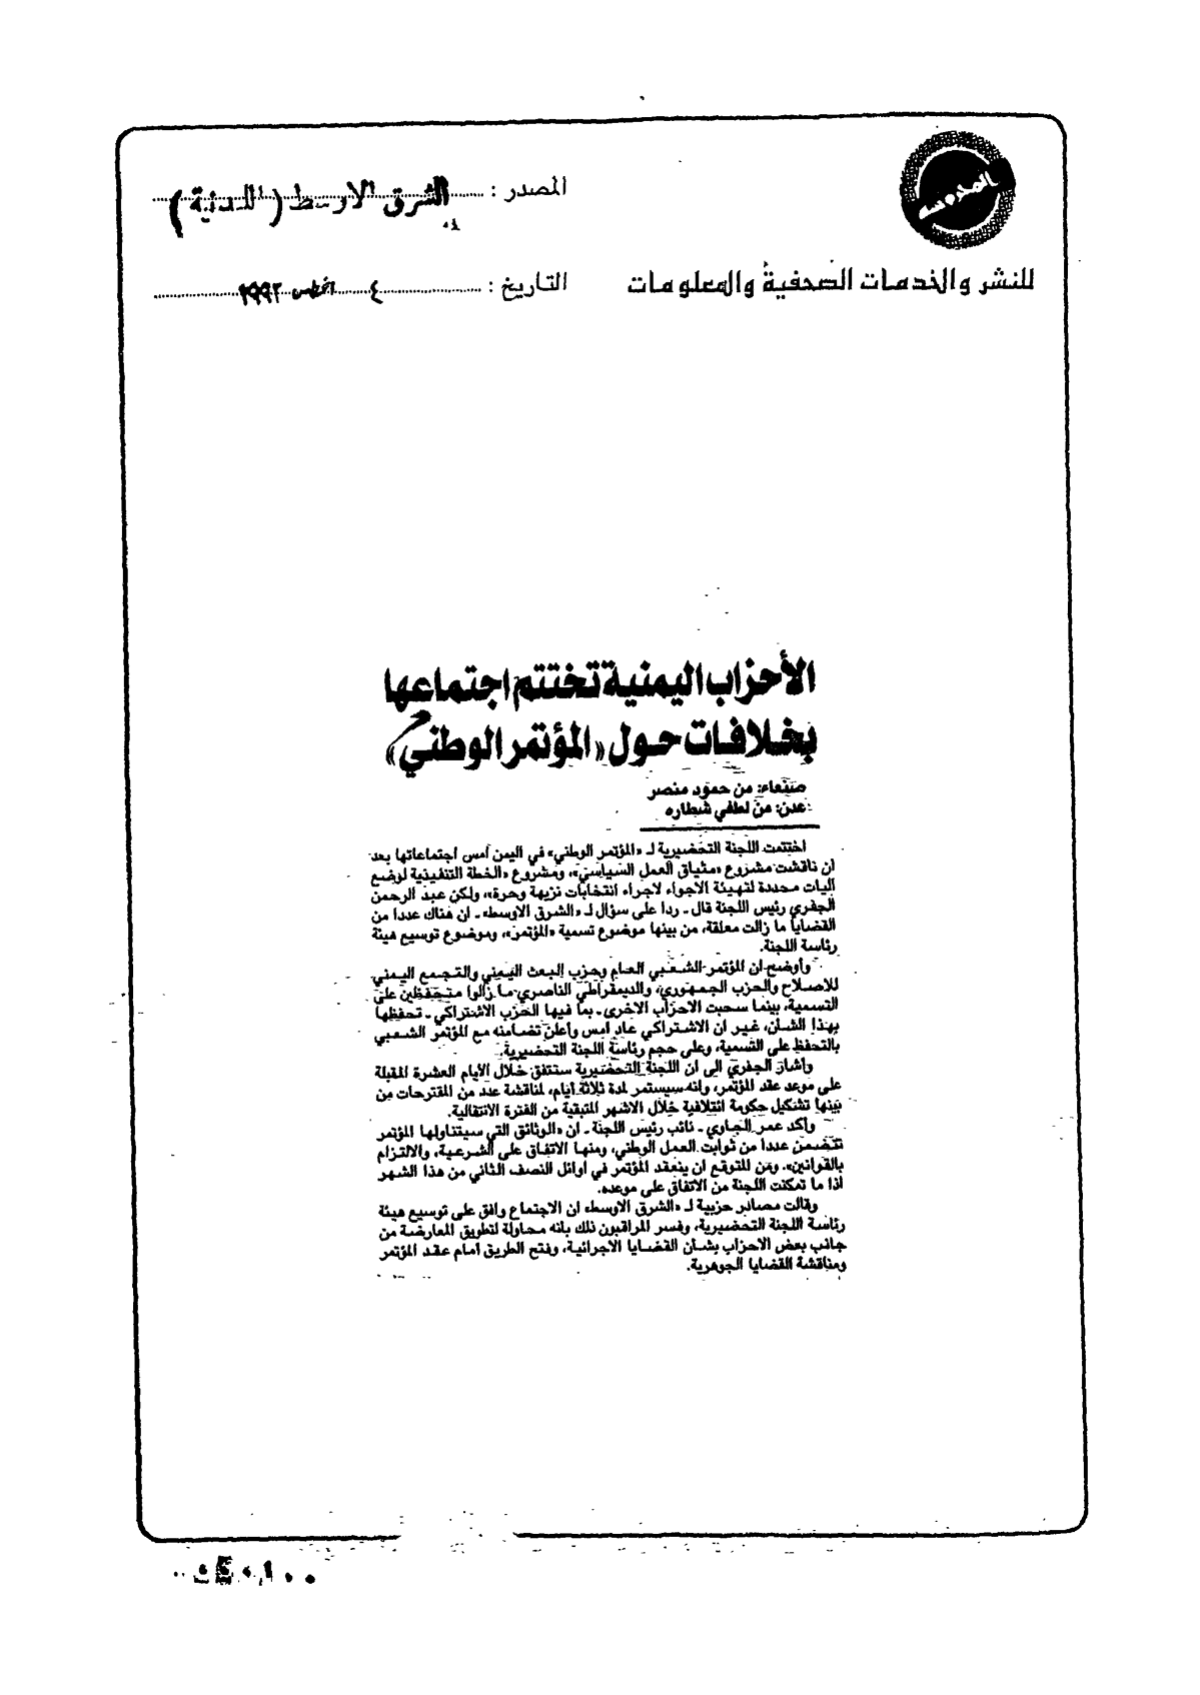 المحروسة
المصدر : الشرق الأوسط (اللندنية)
للنشر والخدمات الصحفية والمعلومات
التاريخ : ٤ أغسطس ١٩٩٢
الأحزاب اليمنية تختتم اجتماعها
بخلافات حول «المؤتمر الوطني»
صنعاء: من حمود منصر
عدن: من لطفي شطاره
اختتمت اللجنة التحضيرية لـ «المؤتمر الوطني» في اليمن أمس اجتماعاتها بعد
ان ناقشت مشروع «ميثاق العمل السياسي»، ومشروع «الخطة التنفيذية لوضع
آليات محددة لتهيئة الاجواء لاجراء انتخابات نزيهة وحرة»، ولكن عبد الرحمن
الجفري رئيس اللجنة قال ـ ردا على سؤال لـ «الشرق الاوسط» ـ ان هناك عددا من
القضايا ما زالت معلقة، من بينها موضوع تسمية «المؤتمر»، وموضوع توسيع هيئة
رئاسة اللجنة.
وأوضح ان المؤتمر الشعبي العام وحزب البعث اليمني والتجمع اليمني
للاصلاح والحزب الجمهوري، والديمقراطي الناصري ما زالوا متحفظين على
التسمية، بينما سحبت الاحزاب الاخرى ـ بما فيها الحزب الاشتراكي ـ تحفظها
بهذا الشأن، غير ان الاشتراكي عاد امس وأعلن تضامنه مع المؤتمر الشعبي
بالتحفظ على التسمية، وعلى حجم رئاسة اللجنة التحضيرية.
وأشار الجفري الى ان اللجنة التحضيرية ستتفق خلال الأيام العشرة المقبلة
على موعد عقد المؤتمر، وانه سيستمر لمدة ثلاثة ايام، لمناقشة عدد من المقترحات من
بينها تشكيل حكومة ائتلافية خلال الاشهر المتبقية من الفترة الانتقالية.
وأكد عمر الجاوي ـ نائب رئيس اللجنة ـ ان «الوثائق التي سيتناولها المؤتمر
تتضمن عددا من ثوابت العمل الوطني، ومنها الاتفاق على الشرعية، والالتزام
بالقوانين». ومن المتوقع ان ينعقد المؤتمر في اوائل النصف الثاني من هذا الشهر
اذا ما تمكنت اللجنة من الاتفاق على موعده.
وقالت مصادر حزبية لـ «الشرق الاوسط» ان الاجتماع وافق على توسيع هيئة
رئاسة اللجنة التحضيرية، وفسر المراقبون ذلك بانه محاولة لتطويق المعارضة من
جانب بعض الاحزاب بشأن القضايا الاجرائية، وفتح الطريق امام عقد المؤتمر
ومناقشة القضايا الجوهرية.